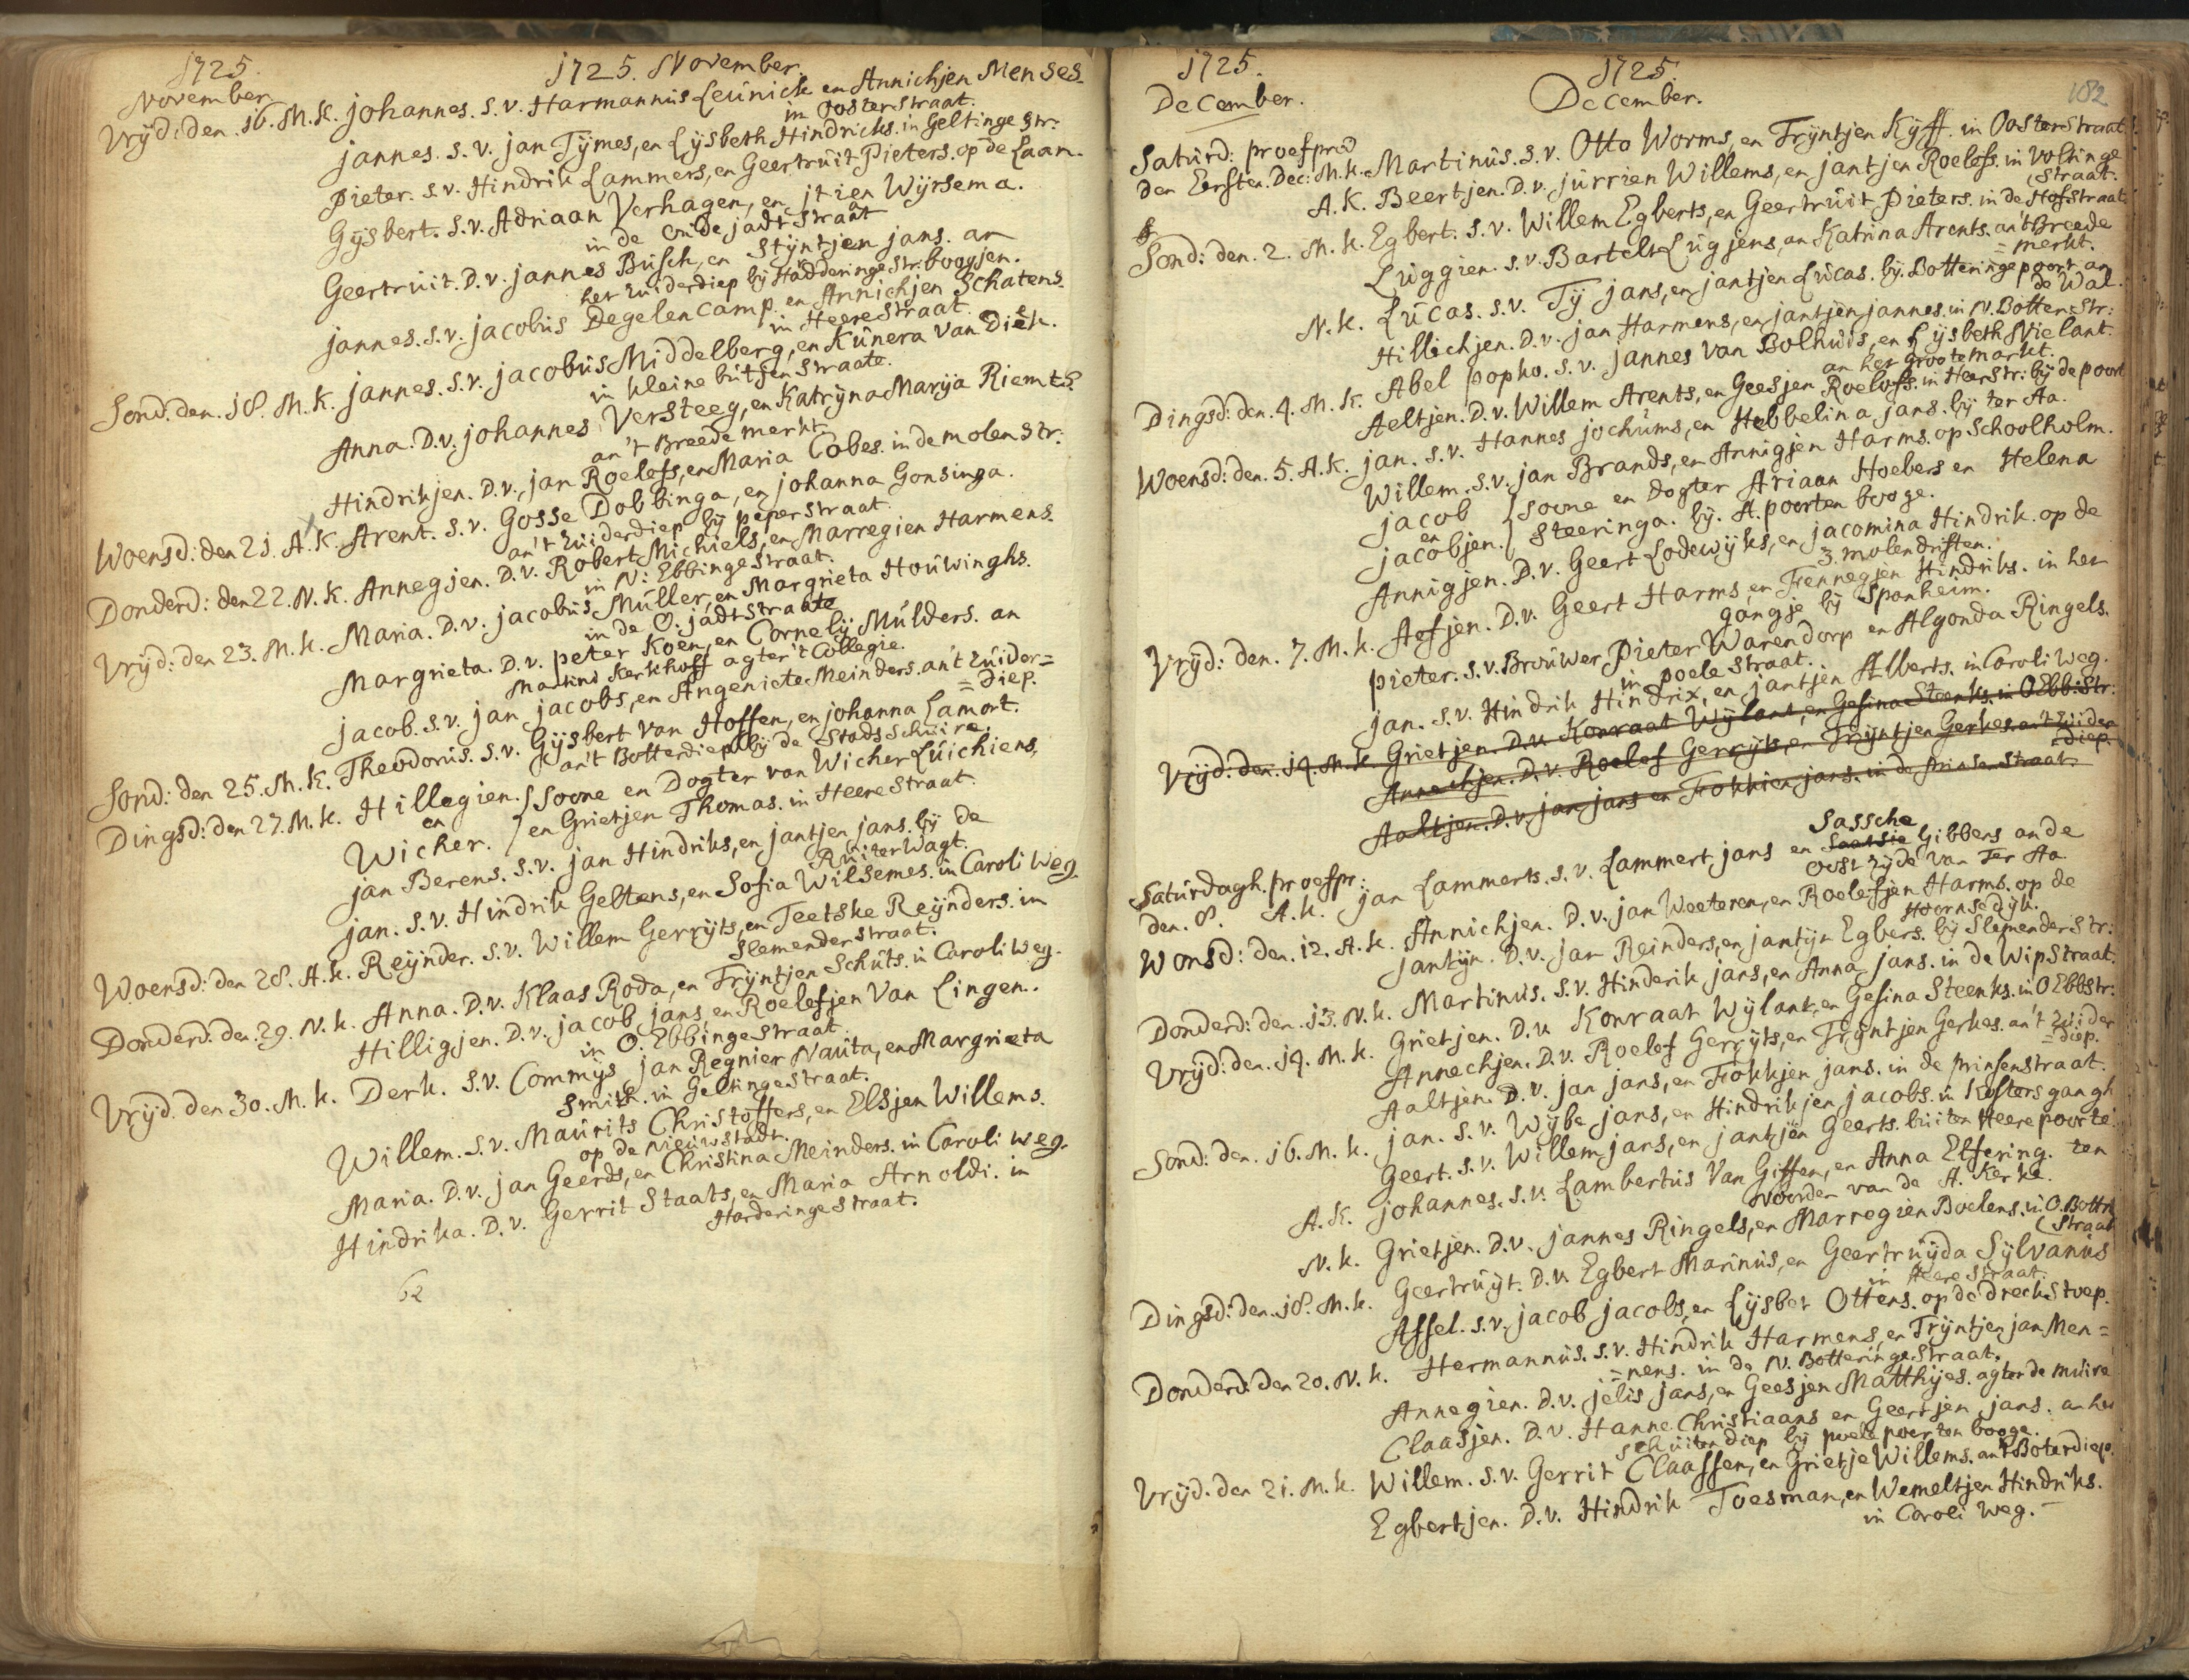 1725.
November
1725. November.
Vrijd: den .16. M.K. Johannes. S.v. Harmannus Leunick en Annichjen Menses.
in Oosterstraat.
Jannes. S.v. Jan Tymes, en Lysbeth Hindricks. in Geltinge Str:
Pieter. S.v. Hindrik Lammers, en Geertruit Pieters. op de Laan.
Gysbert. S.v. Adriaan Verhagen, en Itien Wyrsema.
in de Oude jadt straat
Geertruit. D.v. Jannes Busch, en Styntjen Jans. an
het Zuiderdiep bij Hadderinge Str: boogjen.
Jannes. S.v. Jacobus Degelencamp. en Annichjen Schatens.
in Heerestraat.
Sond. den. 18. M.K. Jannes. S.v. Jacobus Middelberg, en Kunera van Diek.
in kleine butjen straate.
Anna. D.v. Johannes Versteeg, en Katryna Marya Riemts
an't Breede merkt
Hindrikjen. D.v. Jan Roelofs, en Maria Cobes. in de molen Str:
Woensd: den 21. A.K. Arent. S.v. Gosse Dobbinga, en Johanna Gonsinga.
an't Zuiderdiep bij peperstraat.
Donderd: den 22. N.K. Annegjen. D.v. Robert Michiels, en Marregien Harmens.
in N: Ebbingestraat.
Vrijd: den 23. M.K. Maria. D.v. Jacobus Muller, en Margrieta Houwinghs.
in de O. jadtstraate
Margrieta. D.v. peter Koen, en Cornely Mulders. an
Martini Kerkhoff agter't Collegie.
Jacob. S.v. Jan Jacobs, en Angeniete Meinders. an't Zuider=
=diep.
Sond: den 25. M.K. Theodorus. S.v. Gysbert van Hoffen, en Johanna Lamort.
an't Botterdiep bij de Stads Schuire.
Dingsd: den 27. M.K. Hillegien. Soone en Dogter van Wicher Luichiens,
en
Wicher. en Grietjen Thomas. in Heerestraat.
Jan Berens. S.v. Jan Hindriks, en Jantjen Jans. bij de
Ruiter Wagt.
Jan. S.v. Hindrik Geltens, en Sofia Wilsemes. in Caroli Weg.
Woensd: den 28. A.K. Reynder. S.v. Willem Gerryts, en Teetske Reynders. in
Slemenderstraat.
Donderd: den 29. N.K. Anna. D.v. Klaas Roda, en Tryntjen Schuts. in Caroli Weg.
Hilligjen. D.v. Jacob Jans, en Roelefjen van Lingen.
in O. Ebbingestraat.
Vrijd. den 30. M.K. Derk. S.v. Commys Jan Regnier Nauta, en Margrieta
Smith. in Geltingestraat.
Willem. S.v. Maurits Christoffers, en Elsjen Willems.
op de Nieuwstadt.
Maria. D.v. Jan Geerds, en Christina Meinders. in Caroli Weg.
Hindrika. D.v. Gerrit Staats, en Maria Arnoldi. in
Harderingestraat.
62
1725.
December.
1725.
December.
182
Saturd: proefpred
den Eersten. Dec: M.K. Martinus. S.v. Otto Worms, en Tryntjen Kyff. in Oosterstraat.
A.K. Beertjen. D.v. Jurrien Willems, en Jantjen Roelofs. in Voltinge
straat.
Sond: den. 2. M.K. Egbert. S.v. Willem Egberts, en Geertruit Pieters. in de Hofstraat
Luggien. S.v. Bartelt Lugjens, en Katrina Arents. an't Breede
=merkt.
N.K. Lucas. S.v. Ty Jans, en Jantjen Lucas. bij. Botteringe poort. an
de Wal.
Hillichjen. D.v. Jan Harmens, en Jantjen Jannes. in N. Botten: Str:
Dingsd: den. 4. M.K. Abel popko. S.v. Jannes van Bolhuis, en Lysbeth Nielant.
an het grootemarkt.
Aeltjen. D.v. Willem Arents, en Geesjen Roelofs. in HeerStr: bij de poort
Woensd: den. 5. A.K. Jan. S.v. Hannes Jochums, en Hebbelina Jans. bij ter Aa.
Willem. S.v. Jan Brands, en Annigjen Harms. op Schoolholm.
Jacob Soone en Dogter Ariaan Hoebers en Helena
en
Jacobjen. Steeringa. bij. A. poorten booge.
Annigjen. D.v. Geert Lodewyks, en Jacomina Hindrik. op de
3. molendriften.
Vrijd: den. 7. M.K. Aefjen. D.v. Geert Harms, en Fennegjen Hindriks. in het
gangje bij Sponheim.
Pieter. S.v. Brouwer Pieter Warendorp en Algonda Ringels.
in poelestraat.
Jan. S.v. Hindrik Hindrix, en Jantjen Alberts. in Caroli Weg.
Vrijd: den. 14. M.K. Grietjen. D.v. Konraat Wylant, en Gesina Steenks. in O Ebb: Str:
Annechjen. D.v. Roelof Gerryts, en Tryntjen Gerkes. an't Zuider
=diep.
Aaltjen. D.v. Jan Jans en Fokkien Jans. in de Prinsenstraat.
Saturdagh. proefpr:
den. 8. A.K. Jan Lammerts. S.v. Lammert Jans en Saatsie Sassche Gibbens an de
oost zyde van Ter Aa.
Wonsd: den. 12. A.K. Annichjen. D.v. Jan Weeteren, en Roelefjen Harms. op de
Hoornsedyk.
Jantyn. D.v. Jan Reinders, en Jantyn Egbers. bij Slemender Str:
Donderd: den. 13. N.K. Martinus. S.v. Hinderik Jans, en Anna Jans. in de Wipstraat.
Vrijd: den. 14. M.K. Grietjen. D.v. Konraat Wylant, en Gesina Steenks. in O Ebbstr:
Annechjen. D.v. Roelof Gerryts, en Tryntjen Gerkes. an't Zuider
=diep.
Aaltjen. D.v. Jan Jans, en Fokkjen Jans. in de prinsenstraat.
Sond: den. 16. M.K. Jan. S.v. Wybe Jans, en Hindrikjen Jacobs. in Kosters gangh
Geert. S.v. Willem Jans, en Jantjen Geerts. buiten Heere poorte.
A.K. Johannes. S.v. Lambertus van Giffen, en Anna Elfering. ten
Noorden van de A. Kerke.
N.K. Grietjen. D.v. Jannes Ringels, en Marregien Boelens. in O. Bottr
(Straat
Dingsd: den. 18. M.K. Geertruyt. D.v. Egbert Marinus, en Geertruyda Sylvanus
in Heerestraat.
Assel. S.v. Jacob Jacobs, en Lysbet Ottens. op de drek Stoep.
Donderd: den 20. N.K. Hermannus. S.v. Hindrik Harmens, en Tryntjen Jan Men=
=nens. in de N. Botteringestraat.
Annegien. D.v. Jelis Jans, en Geesjen Matthyes. agter de muire
Claasjen. D.v. Hanne Christiaans en Geertjen Jans. an het
Schuiten diep bij poelepoorten booge.
Vrijd. den 21. M.K. Willem. S.v. Gerrit Claassen, en Grietje Willems. an't Boterdiep.
Egbertjen. D.v. Hindrik Toesman, en Wemeltjen Hindriks.
in Caroli Weg.